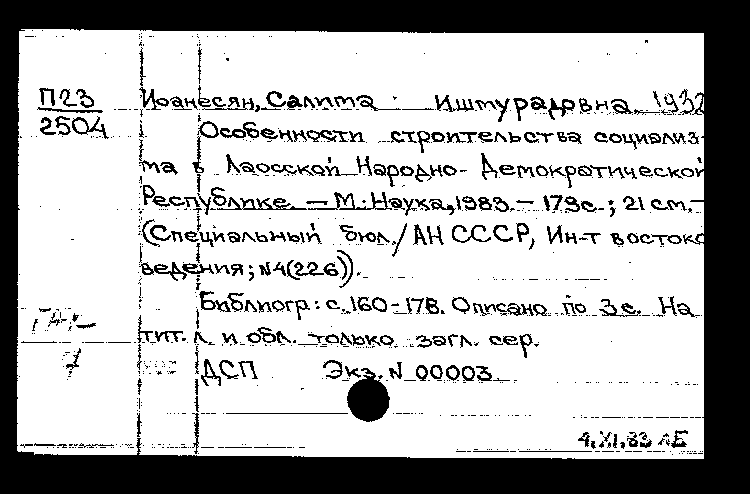 П23
2504
Иоанесян, Салита Иштурадовна 1932
Особенности строительства социализ-
ма в Лаосской Народно-Демократической
Республике. — М.: Наука, 1983. — 179с.; 21 см. —
(Специальный бюл. / АН СССР, Ин-т востоко
ведения; N4(226)).
Библиогр.: с. 160-178. Описано по 3 с. На
тит. л. и обл. только загл. сер.
ДСП Экз. N 00003
4.XI.83 ЛЕ